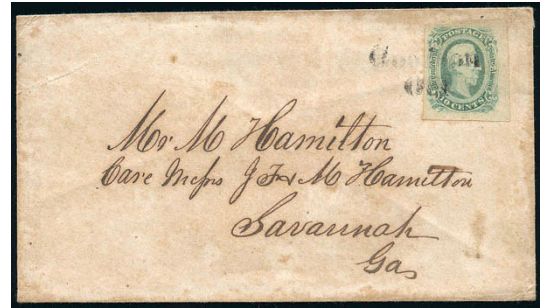 POSTAGE
CENTS
Mr M Hamilton
Care Messrs J & M Hamilton
Savannah
Ga